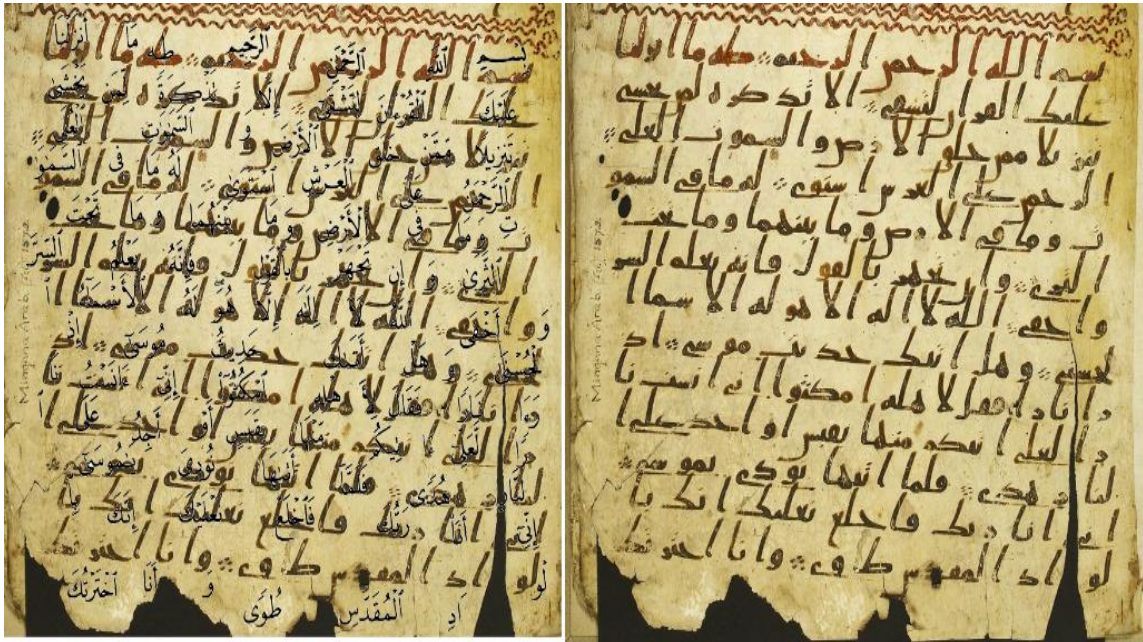 بِسْمِ ٱللَّهِ ٱلرَّحْمَٰنِ ٱلرَّحِيمِ طه مَا أَنزَلْنَا
عَلَيْكَ ٱلْقُرْءَانَ لِتَشْقَىٰ إِلَّا تَذْكِرَةً لِّمَن يَخْشَىٰ
تَنزِيلًا مِّمَّنْ خَلَقَ ٱلْأَرْضَ وَ ٱلسَّمَٰوَٰتِ ٱلْعُلَى
ٱلرَّحْمَٰنُ عَلَى ٱلْعَرْشِ ٱسْتَوَىٰ لَهُ مَا فِى ٱلسَّمَٰوَٰ
تِ وَ مَا فِى ٱلْأَرْضِ وَ مَا بَيْنَهُمَا وَ مَا تَحْتَ
ٱلثَّرَىٰ وَ إِن تَجْهَرْ بِٱلْقَوْلِ فَإِنَّهُ يَعْلَمُ ٱلسِّرَّ
وَ أَخْفَى ٱللَّهُ لَا إِلَٰهَ إِلَّا هُوَ لَهُ ٱلْأَسْمَاءُ ٱ
لْحُسْنَىٰ وَ هَلْ أَتَىٰكَ حَدِيثُ مُوسَىٰ إِذْ
رَءَا نَارًا فَقَالَ لِأَهْلِهِ ٱمْكُثُوا إِنِّى ءَانَسْتُ نَا
رًا لَّعَلِّى ءَاتِيكُم مِّنْهَا بِقَبَسٍ أَوْ أَجِدُ عَلَى ٱ
لنَّارِ هُدًى فَلَمَّا أَتَىٰهَا نُودِىَ يَٰمُوسَىٰ
إِنِّى أَنَا رَبُّكَ فَٱخْلَعْ نَعْلَيْكَ إِنَّكَ بِٱ
لْوَادِ ٱلْمُقَدَّسِ طُوًى وَ أَنَا ٱخْتَرْتُكَ
Mingana Arab. Isl. 1572
بسم الله الرحمن الرحيم طه ما انزلنا
عليك القران لتشقى الا تذكره لمن يخشى
تنزيلا ممن خلق الارض والسموت العلى
الرحمن على العرش استوى له ما في السمو
ت وما في الارض وما بينهما وما تحت
الثرى وان تجهر بالقول فانه يعلم السر
واخفى الله لا اله الا هو له الاسما ا
لحسنى وهل اتيك حديث موسى اذ
را نارا فقل لاهله امكثوا اني انست نا
را لعلي اتيكم منها بقبس او اجد على ا
لنار هدى فلما اتيها نودي يموسى
اني انا ربك فاخلع نعليك انك با
لواد المقدس طوى وانا اخترتك
Mingana Arab. Isl. 1572